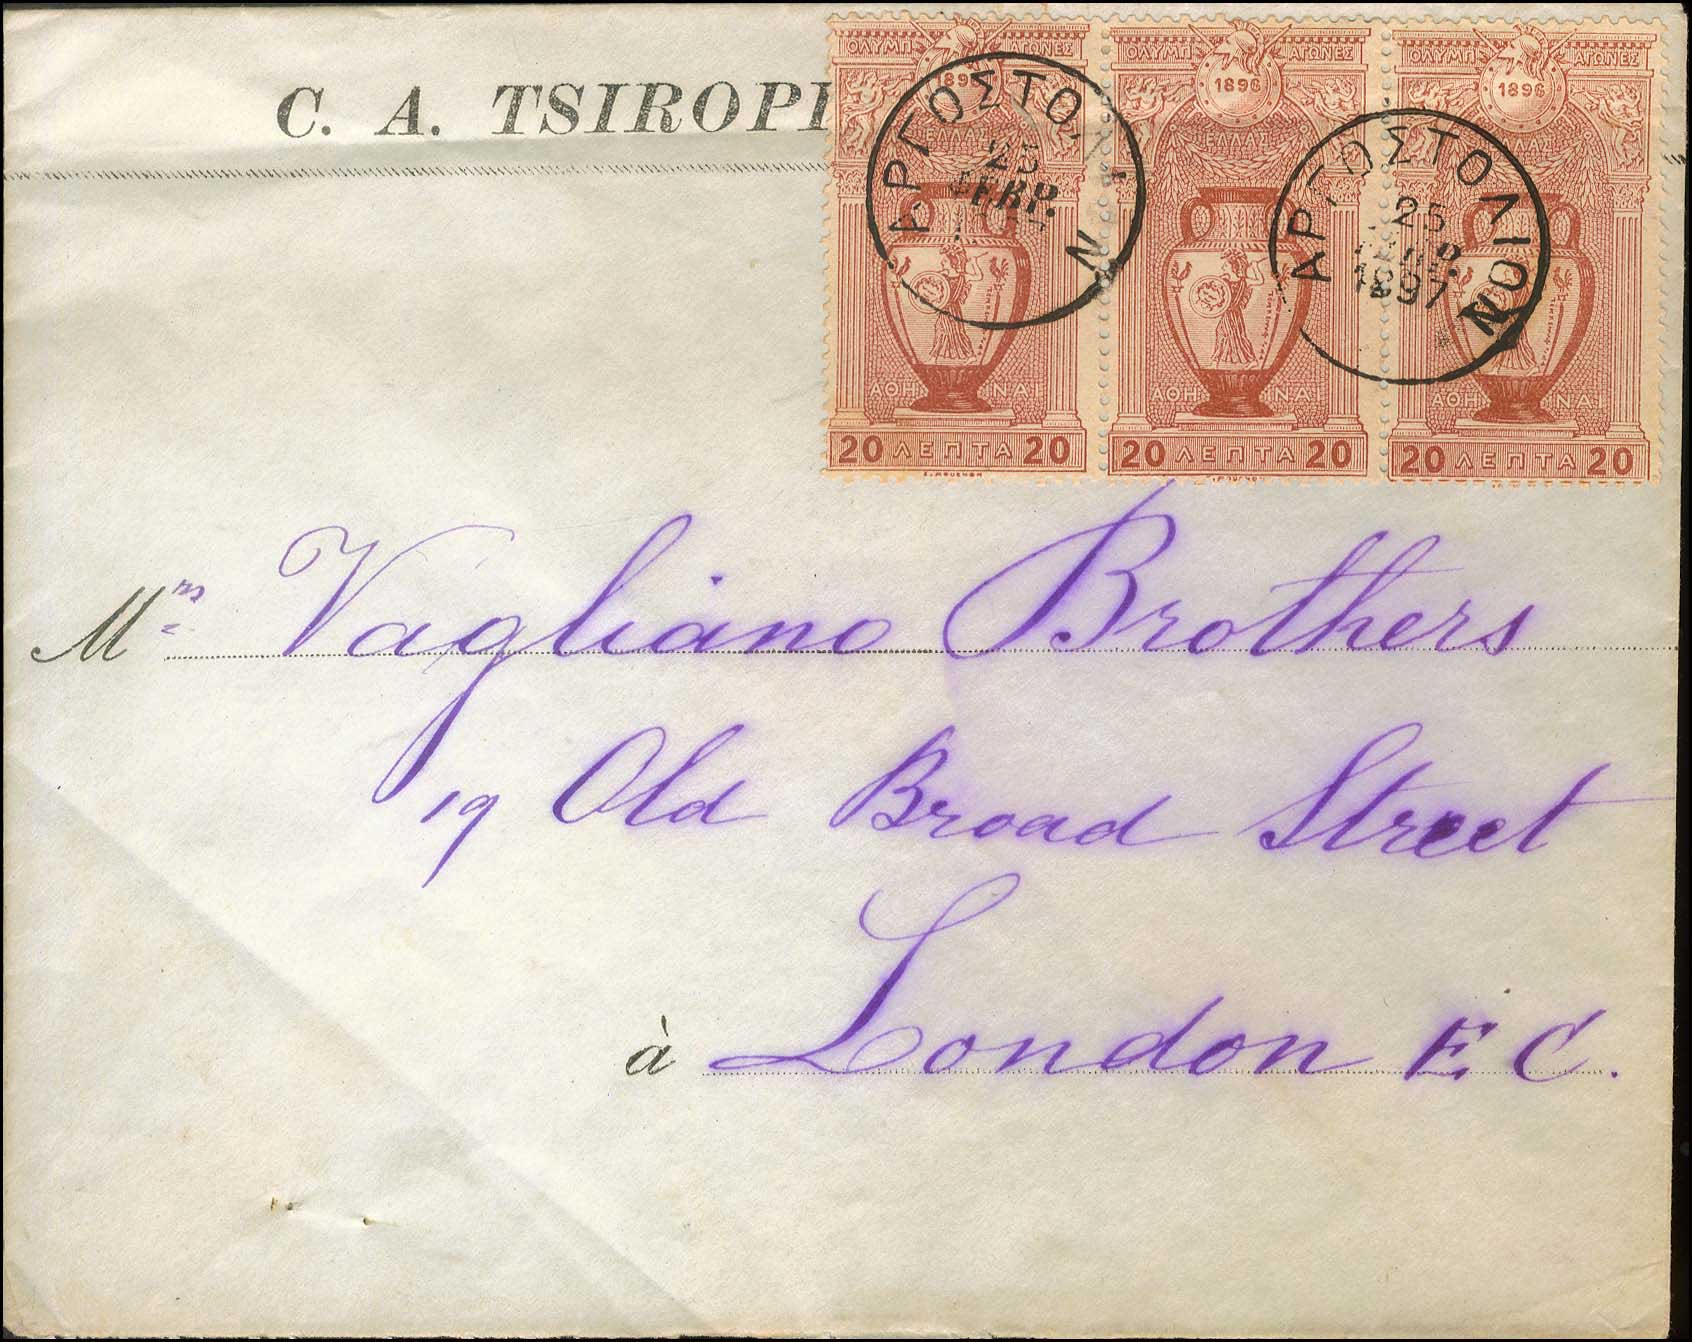 C. A. TSIROPI
ΟΛΥΜΠ ΑΓΩΝΕΣ ΟΛΥΜΠ ΑΓΩΝΕΣ ΟΛΥΜΠ ΑΓΩΝΕΣ
1896 1896 1896
ΕΛΛΑΣ ΕΛΛΑΣ
ΑΡΓΟΣΤΟΛΙΟΝ
25
ΦΕΒΡ.
ΑΡΓΟΣΤΟΛΙΟΝ
25
1897
ΑΘΗΝΑΙ ΑΘΗΝΑΙ ΑΘΗΝΑΙ
20 ΛΕΠΤΑ 20 20 ΛΕΠΤΑ 20 20 ΛΕΠΤΑ 20
Mrs Vagliano Brothers
19 Old Broad Street
à London E C.